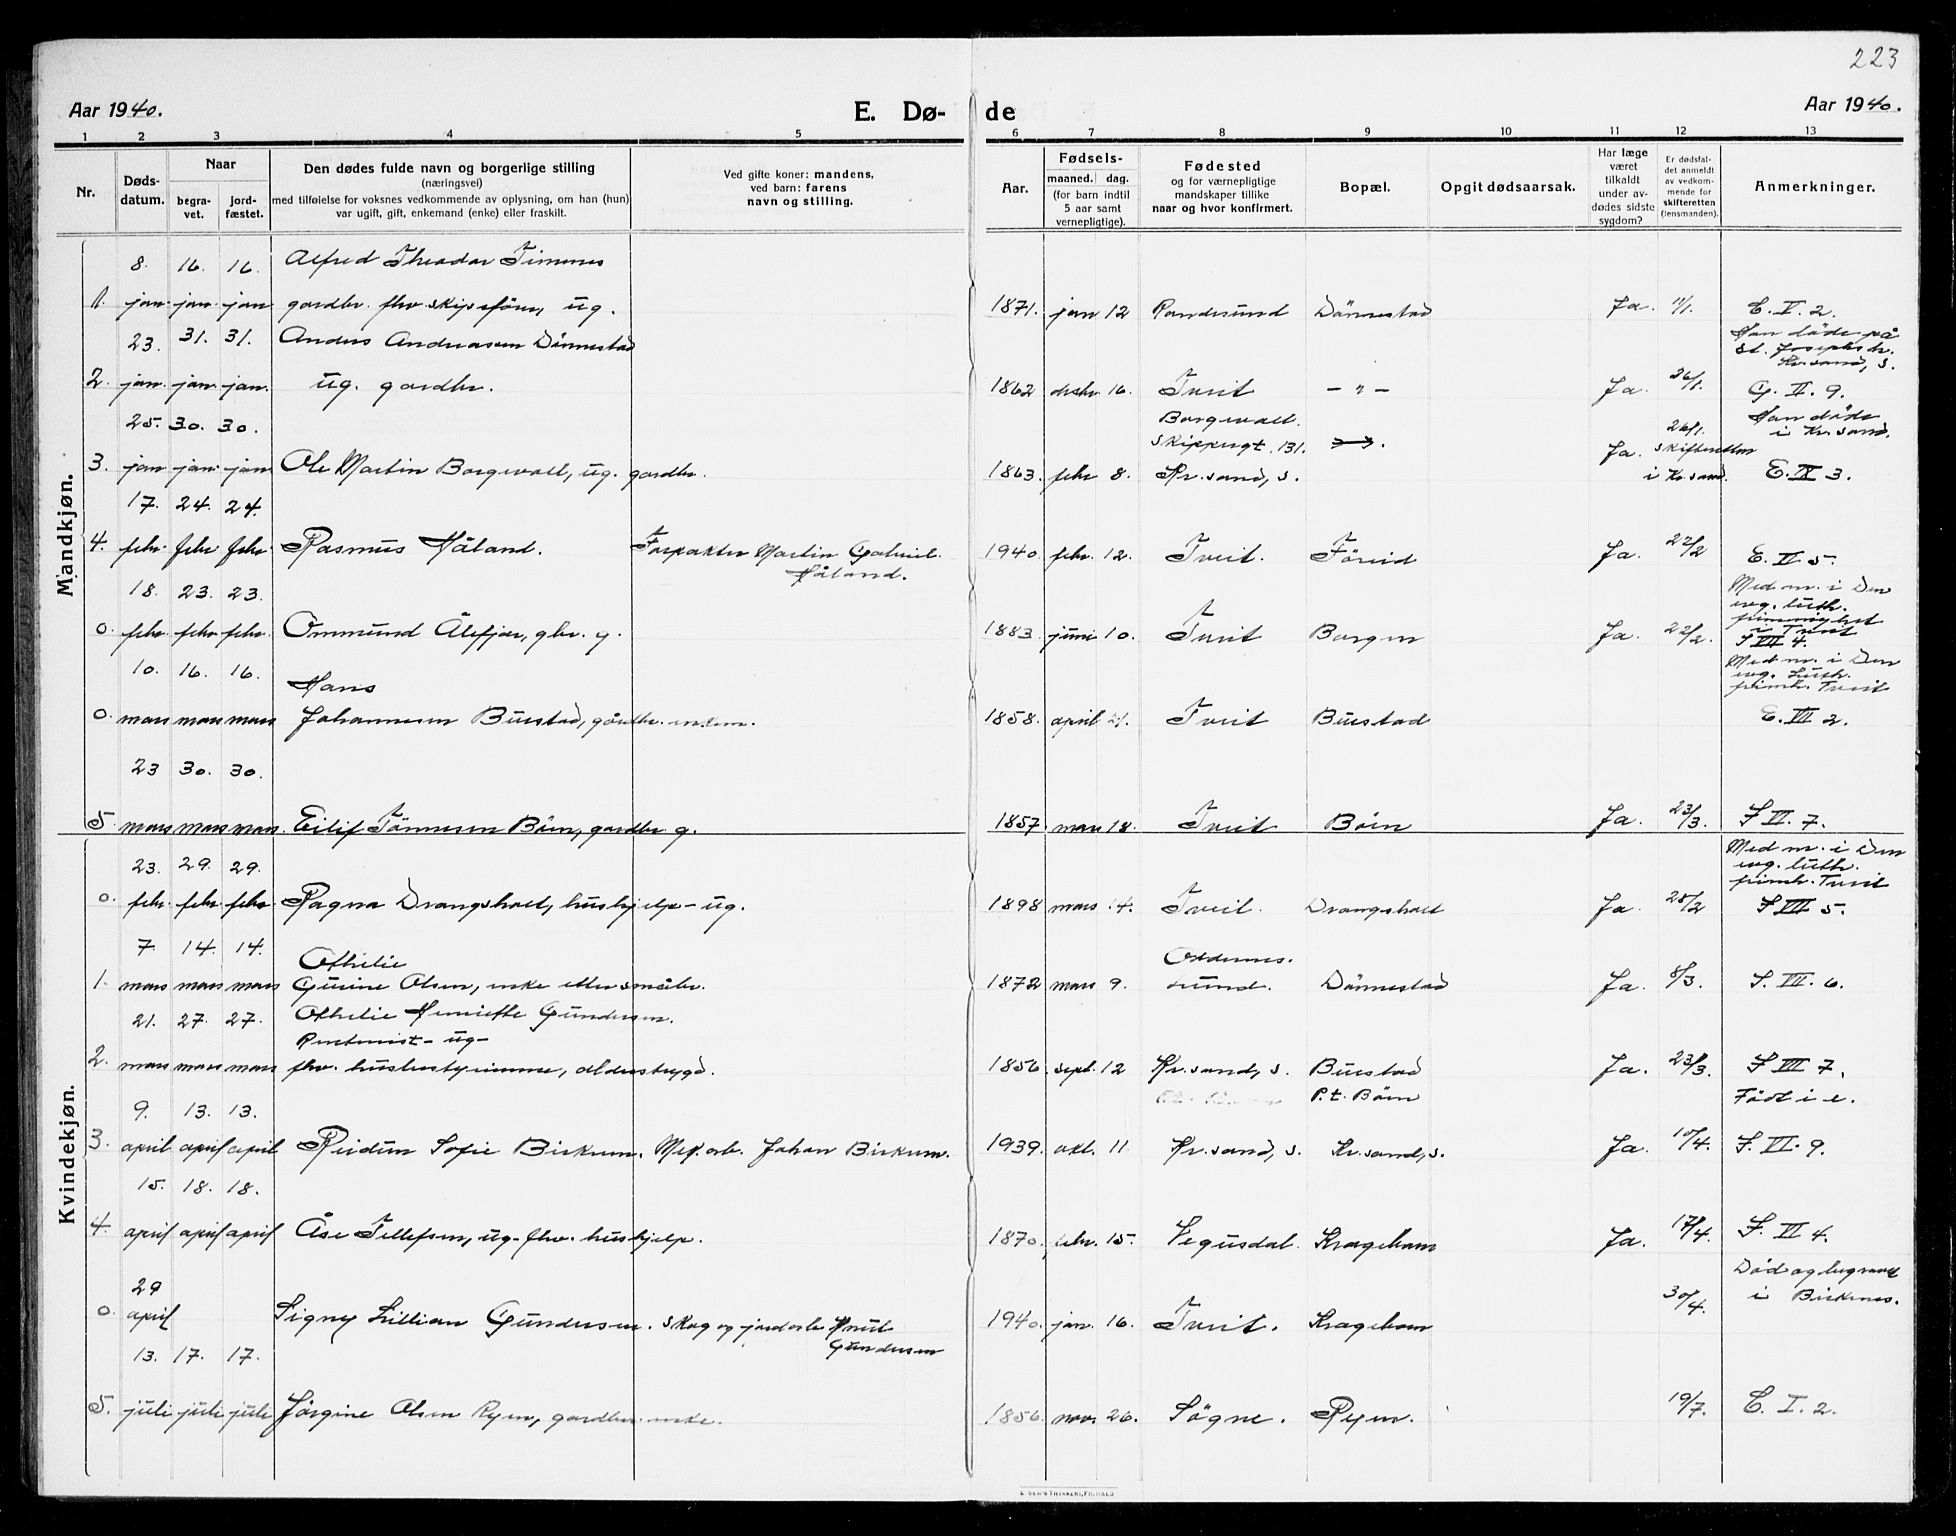 223
Aar 1940.
E. Dø-
de
Aar 1940.
1 2 3 4 5 6 7 8 9 10 11 12 13
Nr.
Døds-
datum.
Naar
begra-
vet.
jord-
fæstet.
Den dødes fulde navn og borgerlige stilling
(næringsvei)
med tilføielse for voksnes vedkommende av oplysning, om han (hun)
var ugift, gift, enkemand (enke) eller fraskilt.
Ved gifte koner: mandens,
ved barn: farens
navn og stilling.
Aar.
Fødsels-
maaned. dag.
(for barn indtil
5 aar samt
vernepligtige).
Fødested
og for værnepligtige
mandskaper tillike
naar og hvor konfirmert.
Bopæl.
Opgit dødsaarsak.
Har læge
været
tilkaldt
under av-
dødes sidste
sygdom?
Er dødsfal-
det anmeldt
av vedkom-
mende for
skifteretten
(lensmanden).
Anmerkninger.
Mandkjøn.
8. 16. 16. Alfred Theodor Timenes
1. jan. jan. jan gardbr. fhv. skipsfører, ug. 1871. jan 12 Randesund Dønnestad Ja. 11/1. E. V. 2.
23. 31. 31. Anders Andreassen Dønnestad Han døde på
St. Josephs h.
Kr.sand, S.
2. jan. jan. jan. ug. gardbr. 1862 desbr 16. Tveit – " – Ja. 26/1. G. II. 9.
25. 30. 30. Borgevall. Han døde
i Kr.sand.
Skippergt. 131. 26/1.
3. jan jan. jan Ole Martin Borgevall, ug. gardbr. 1863. febr 8. Kr.sand, S. Ja. skifteretten
i Kr.sand. E. IX 3.
17. 24. 24.
4. febr. febr febr Rasmus Håland. Forpakter Martin Gabriel
Håland. 1940. febr. 12. Tveit. Førvid Ja. 22/2 E. II 5.
18. 23. 23. Med nr. i Den
evg. luth.
frimenighet
i Tveit
0. febr. febr. febr. Ommund Ålefjær, gbr. g. 1883. juni 10. Tveit Borgen Ja. 22/2. S VII 4.
10. 16. 16. Hans Med nr. i Den
evg. Luth.
frimh. Tveit
0. mars mars mars Johannesen Buestad, gårdbr. enkem. 1858. april 21. Tveit Buestad E. VII 2.
23 30. 30.
5. mars mars mars. Eilif Tønnesen Bøen, gardbr g. 1857. mars 18. Tveit Bøen Ja. 23/3. S VII. 7.
Kvindekjøn.
23. 29. 29. Med nr. i Den
evg. luth.
frimh. Tveit
0. febr. febr. febr. Ragna Drangsholt, hushjelp – ug. 1898 mars 14. Tveit. Drangsholt Ja. 25/2 S VIII 5.
7. 14. 14. Othelie Oddernes.
1. mars mars mars Gurine Olsen, enke etter småbr. 1872 mars 9. Lund. Dønnestad Ja. 8/3. S. VII. 6.
21. 27. 27. Othelie Henriette Gundersen.
Rentenist – ug –
2. mars mars mars fhv. husbestyrinne, alderstrygd. 1856. sept. 12 Kr.sand, S. Buestad Ja. 23/3. S VII 7.
9. 13. 13. P.t. Bøen Født i e.
3. april april april Reidun Sofie Birkum. Mek.arb. Johan Birkum. 1939. okt. 11 Kr.sand, S. Kr.sand, S. Ja. 10/4. S. VI. 9.
15. 18. 18.
4. april april april Åse Tellefsen, ug – fhv. hushjelp. 1870. febr. 15. Vegusdal. Krageboen Ja. 17/4. S. VI 4.
29 Død og begravet
0. april Signy Lillian Gundersen. Skog og jordarb. Knut
Gundersen 1940. jan. 16. Tveit. Krageboen 30/4. i Birkenes.
13. 17. 17.
5. juli juli juli Jørgine Olsen Ryen, gardbr. enke. 1856. nov. 26. Søgne. Ryen. 19/7. E. I. 2.